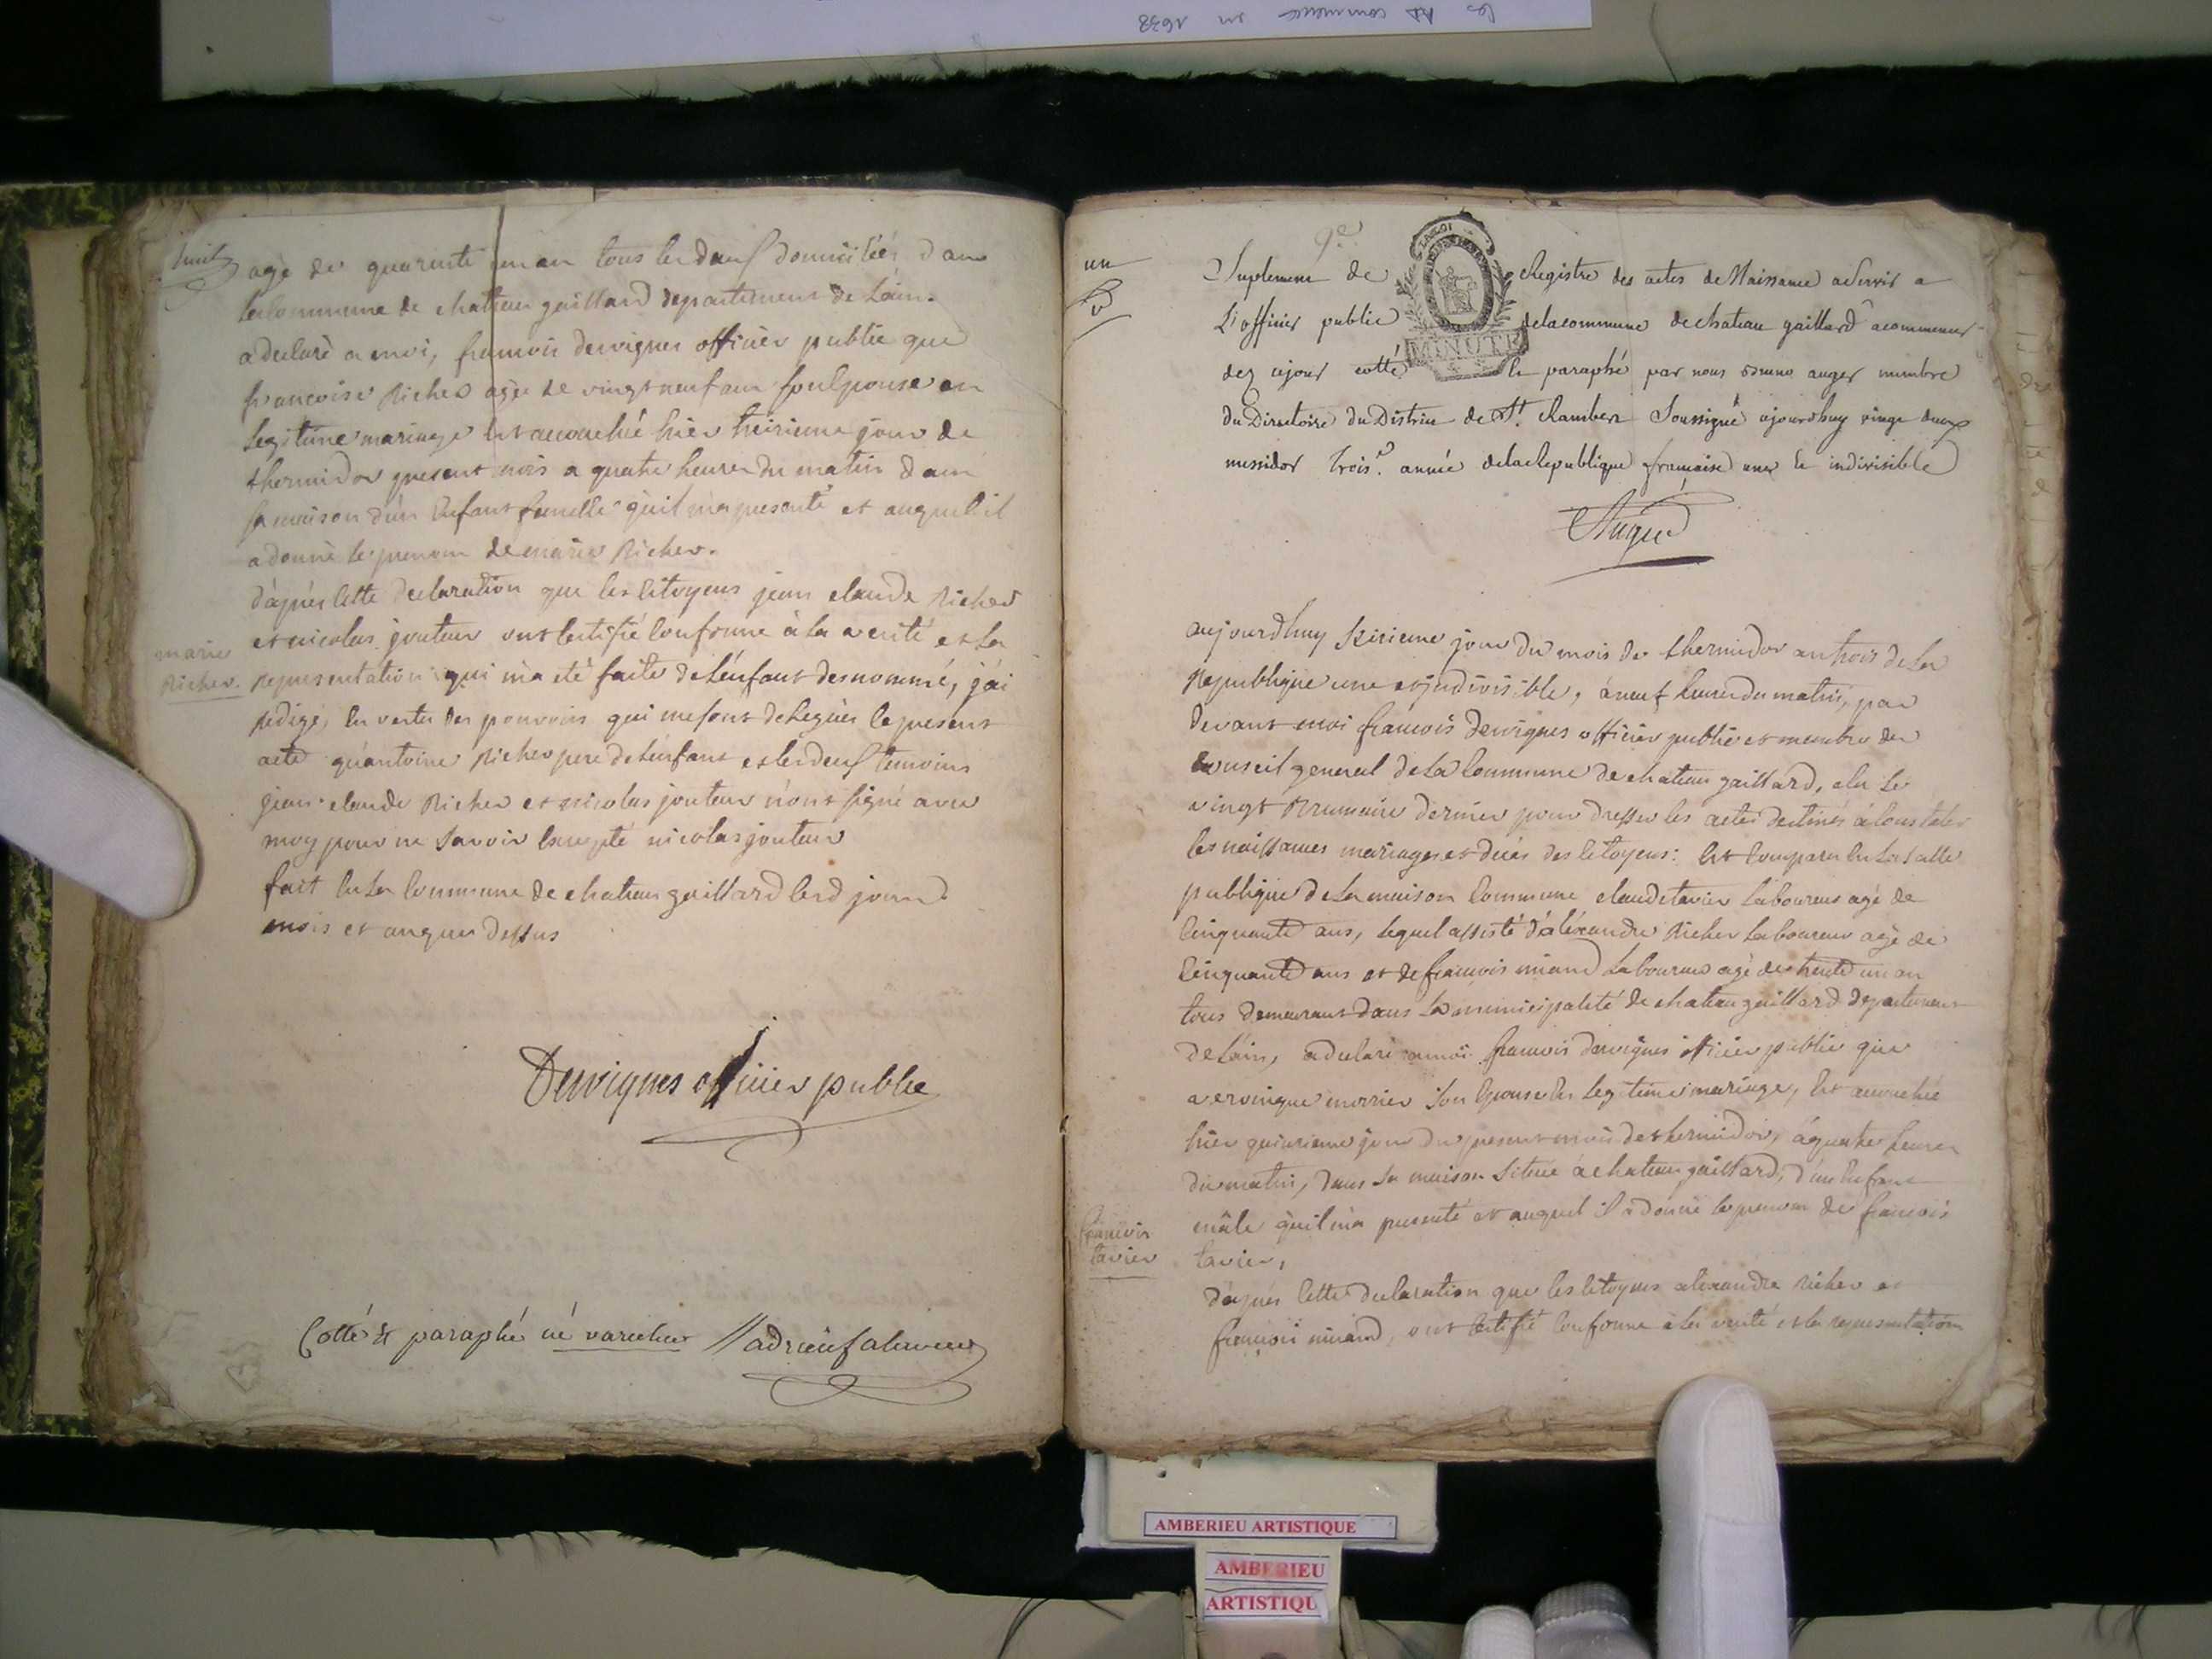 les Ad commence en 1692
huit
agé de quarante un an tous les deux domiciliés dans
la Commune de chatteau gaillard departement de Lain.
a declaré a moi, francois dervignes officier public que
francoise Richer agée de vingt neuf ans son Epouse en
legitime mariage Est accouchée hier treizieme jour de
thermidor present mois a quatre heures du matin dans
sa maison d'un Enfant femelle qu'il m'a presenté et auquel il
a donné le prenom de marie Richer.
d'aprés Cette declaration que les Citoyens jean claude Richer
et nicolas jouteur ont Certifié Conforme à la verité et la
marie
Richer.
representation qui m'a eté faite de L'enfant desnommé, j'ai
redigé, En vertu des pouvoirs qui me sont delegués le present
acte qu'antoine Richer pere de L'enfant et les deux temoins
jean claude Richer et nicolas jouteur n'ont signé avec
moy pour ne Savoir Excepté nicolas jouteur
fait En La Commune de chateau gaillard Les d jour
mois et an que dessus
Dervignes officier public
Cotté & paraphé né varietur
un
9e
Suplement de Registre des actes de Naissance aServir a
L'officier public delacommune dechateau gaillard acommencer
dez cejour cotté & paraphé par nous Bruno auger membre
du Directoire du District de St. Rambert Soussigné ajourdhuy vingt deux
messidor trois.e année delaRepublique francaise une & indivisible
Auger
LA LOI
MINUTE
aujourdhuy Seizieme jour du mois de thermidor an trois de La
Republique une et jndivisible, à neuf heures du matin, par
devant moi francois dervignes officier public et membre du
Conseil general de La Commune de chateau gaillard, elu Le
vingt Brumaire dernier pour dresser les actes destinés à Constater
les naissances mariages et decés des Citoyens: Est Comparu En La Salle
publique de La maison Commune claude tavier Laboureur agé de
Cinquante ans, lequel assisté d'aléxandre Richer Laboureur agé de
Cinquante ans et de francois minand Laboureur agé de trente un an
tous demeurant dans La municipalité de chateau gaillard departement
de Lain, a declaré a moi francois dervignes officier public que
hier quinzieme jour du present mois de thermidor, à quatre heures
du matin, dans sa maison Située à chateau gaillard, d'un Enfant
francois
tavier
mâle qu'il m'a presenté et auquel il a donné le prenom de francois
tavier,
d'aprés Cette declaration que les Citoyens alexandre Richer et
francois minand, ont Certifié Conforme à La verité et la representation
AMBERIEU ARTISTIQUE
AMBERIEU
ARTISTIQU